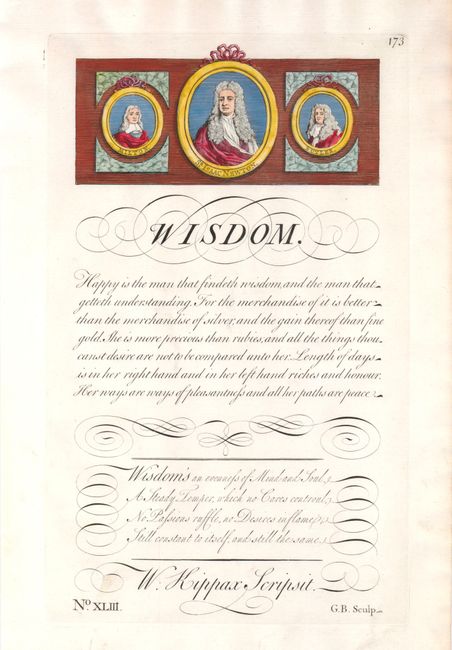 173
MILTON
Sr. ISAAC NEWTON
BUTLER
WISDOM.
Happy is the man that findeth wisdom, and the man that
getteth understanding. For the merchandise of it is better
than the merchandise of silver, and the gain thereof than fine
gold. She is more precious than rubies, and all the things thou
canst desire are not to be compared unto her. Length of days
is in her right hand and in her left hand riches and honour.
Her ways are ways of pleasantness and all her paths are peace.
Wisdom's an evenness of Mind and Soul,
A Steady Temper, which no Cares controul,
No Passions ruffle, no Desires inflame,
Still constant to itself, and still the same.
W. Hippax Scripsit.
No. XLIII.
G.B. Sculp.